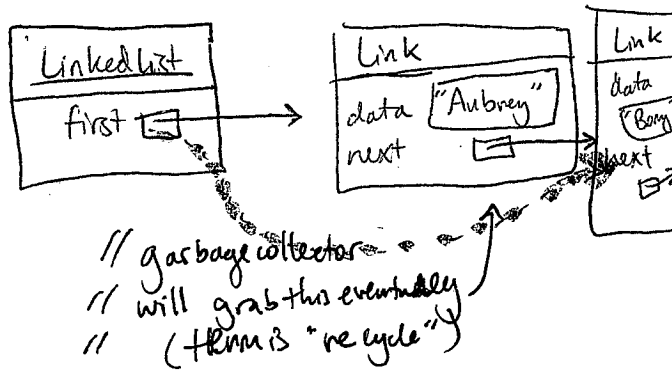 LinkedList
first
Link
data "Aubrey"
next
Link
data
next
// garbage collector
// will grab this eventually
// (term is "recycle")